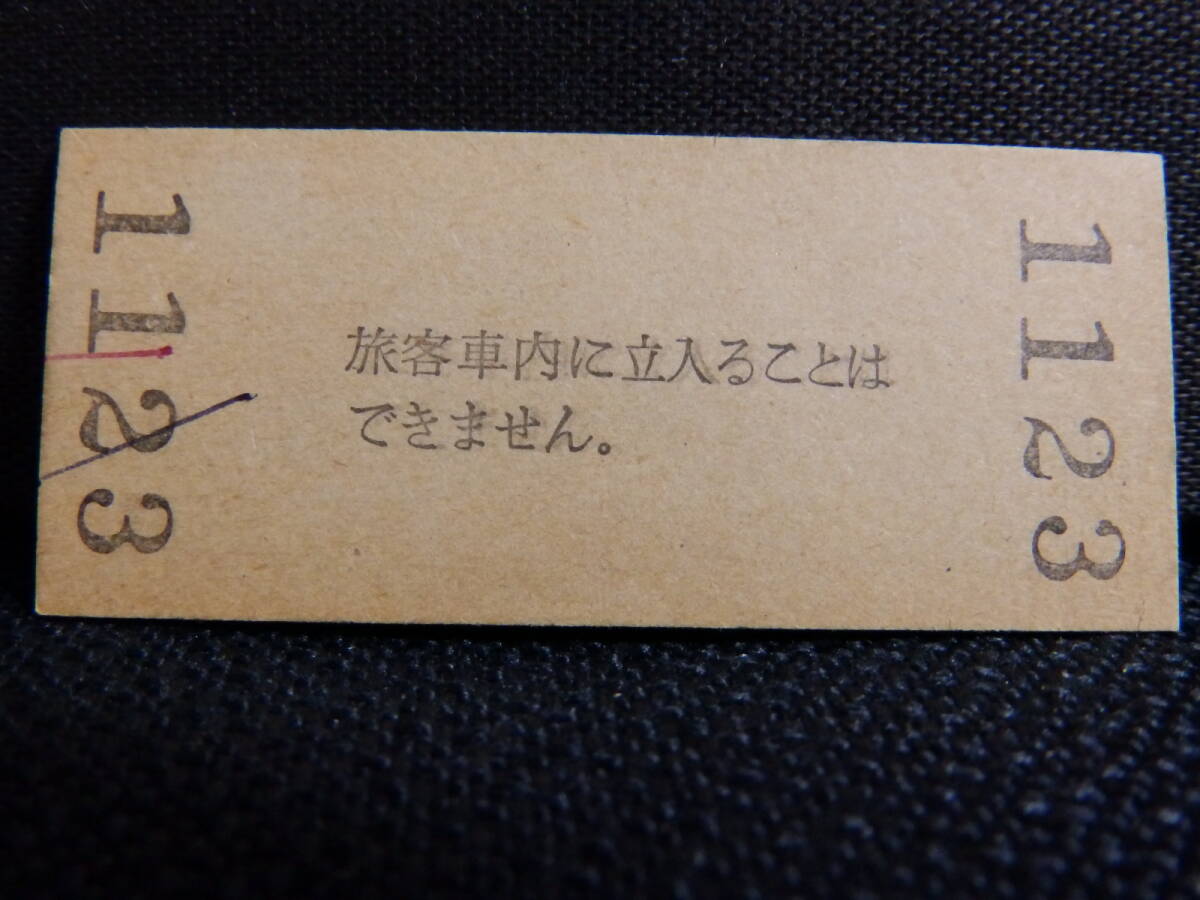 1123
旅客車内に立入ることは
できません。
1123